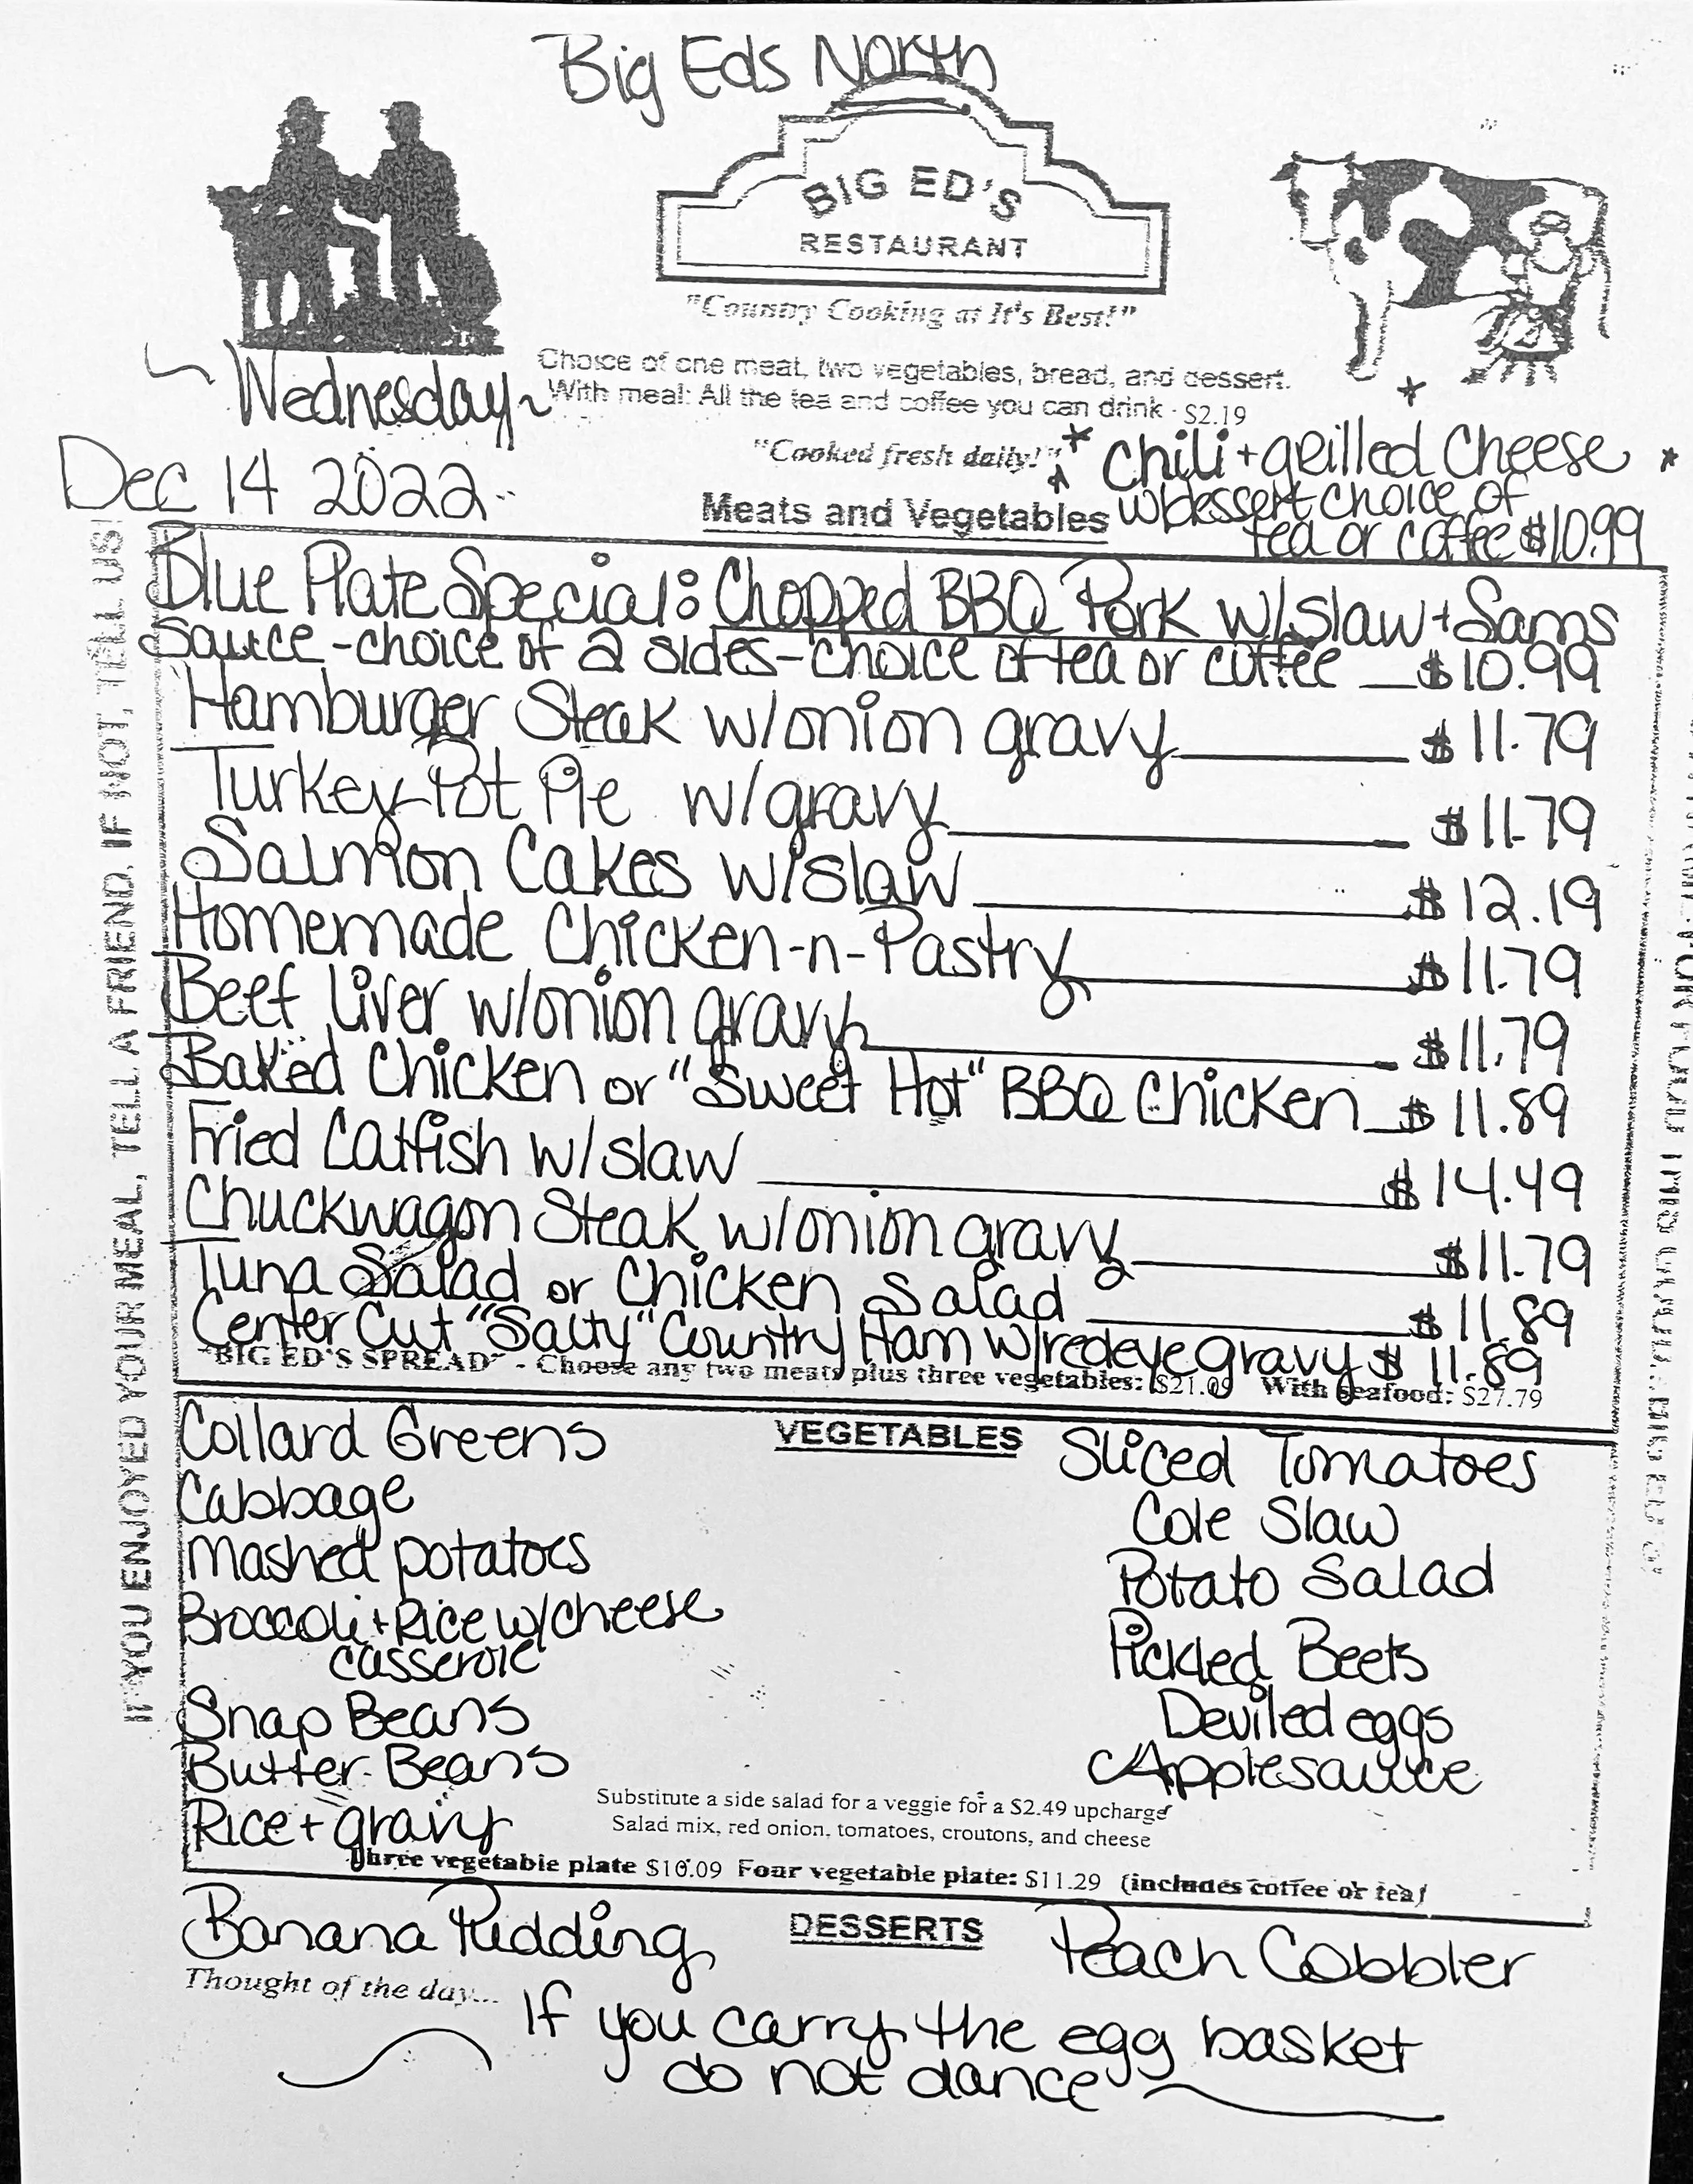 Big Eds North
BIG ED'S
RESTAURANT
"Country Cooking at It's Best!"
Choice of one meat, two vegetables, bread, and dessert.
With meal: All the tea and coffee you can drink - $2.19
~ Wednesday ~
"Cooked fresh daily!"
Dec 14 2022
* Chili + grilled Cheese *
w/dessert choice of
tea or coffee $10.99
Meats and Vegetables
Blue Plate Special: Chopped BBQ Pork w/slaw + Sams
Sauce - choice of 2 sides - choice of tea or coffee $10.99
Hamburger Steak w/onion gravy $11.79
Turkey Pot Pie w/gravy $11.79
Salmon Cakes w/slaw $12.19
Homemade Chicken-n-Pastry $11.79
Beef Liver w/onion gravy $11.79
Baked Chicken or "Sweet Hot" BBQ Chicken $11.89
Fried Catfish w/slaw $14.49
Chuckwagon Steak w/onion gravy $11.79
Tuna Salad or Chicken Salad $11.89
Center Cut "Salty" Country Ham w/redeye gravy $11.89
"BIG ED'S SPREAD" - Choose any two meats plus three vegetables: $21.09 With seafood: $27.79
VEGETABLES
Collard Greens
Cabbage
Mashed potatoes
Broccoli + Rice w/cheese
casserole
Snap Beans
Butter Beans
Rice + gravy
Sliced Tomatoes
Cole Slaw
Potato Salad
Pickled Beets
Deviled eggs
Applesauce
Substitute a side salad for a veggie for a $2.49 upcharge
Salad mix, red onion, tomatoes, croutons, and cheese
Three vegetable plate $10.09 Four vegetable plate: $11.29 (includes coffee or tea)
DESSERTS
Banana Pudding
Peach Cobbler
Thought of the day...
If you carry the egg basket
do not dance
IF YOU ENJOYED YOUR MEAL, TELL A FRIEND. IF NOT, TELL US!